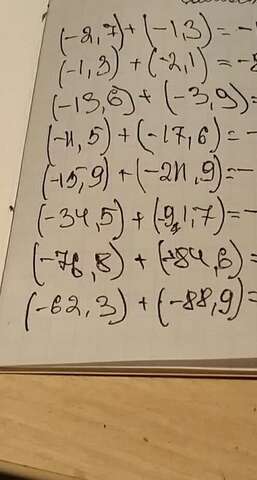 (-2,7) + (-1,3) = -
(-1,3) + (-2,1) = -
(-13,6) + (-3,9) =
(-11,5) + (-17,6) = -
(-15,9) + (-211,9) = -
(-34,5) + (-91,7) = -
(-76,8) + (-84,6) =
(-62,3) + (-88,9) =